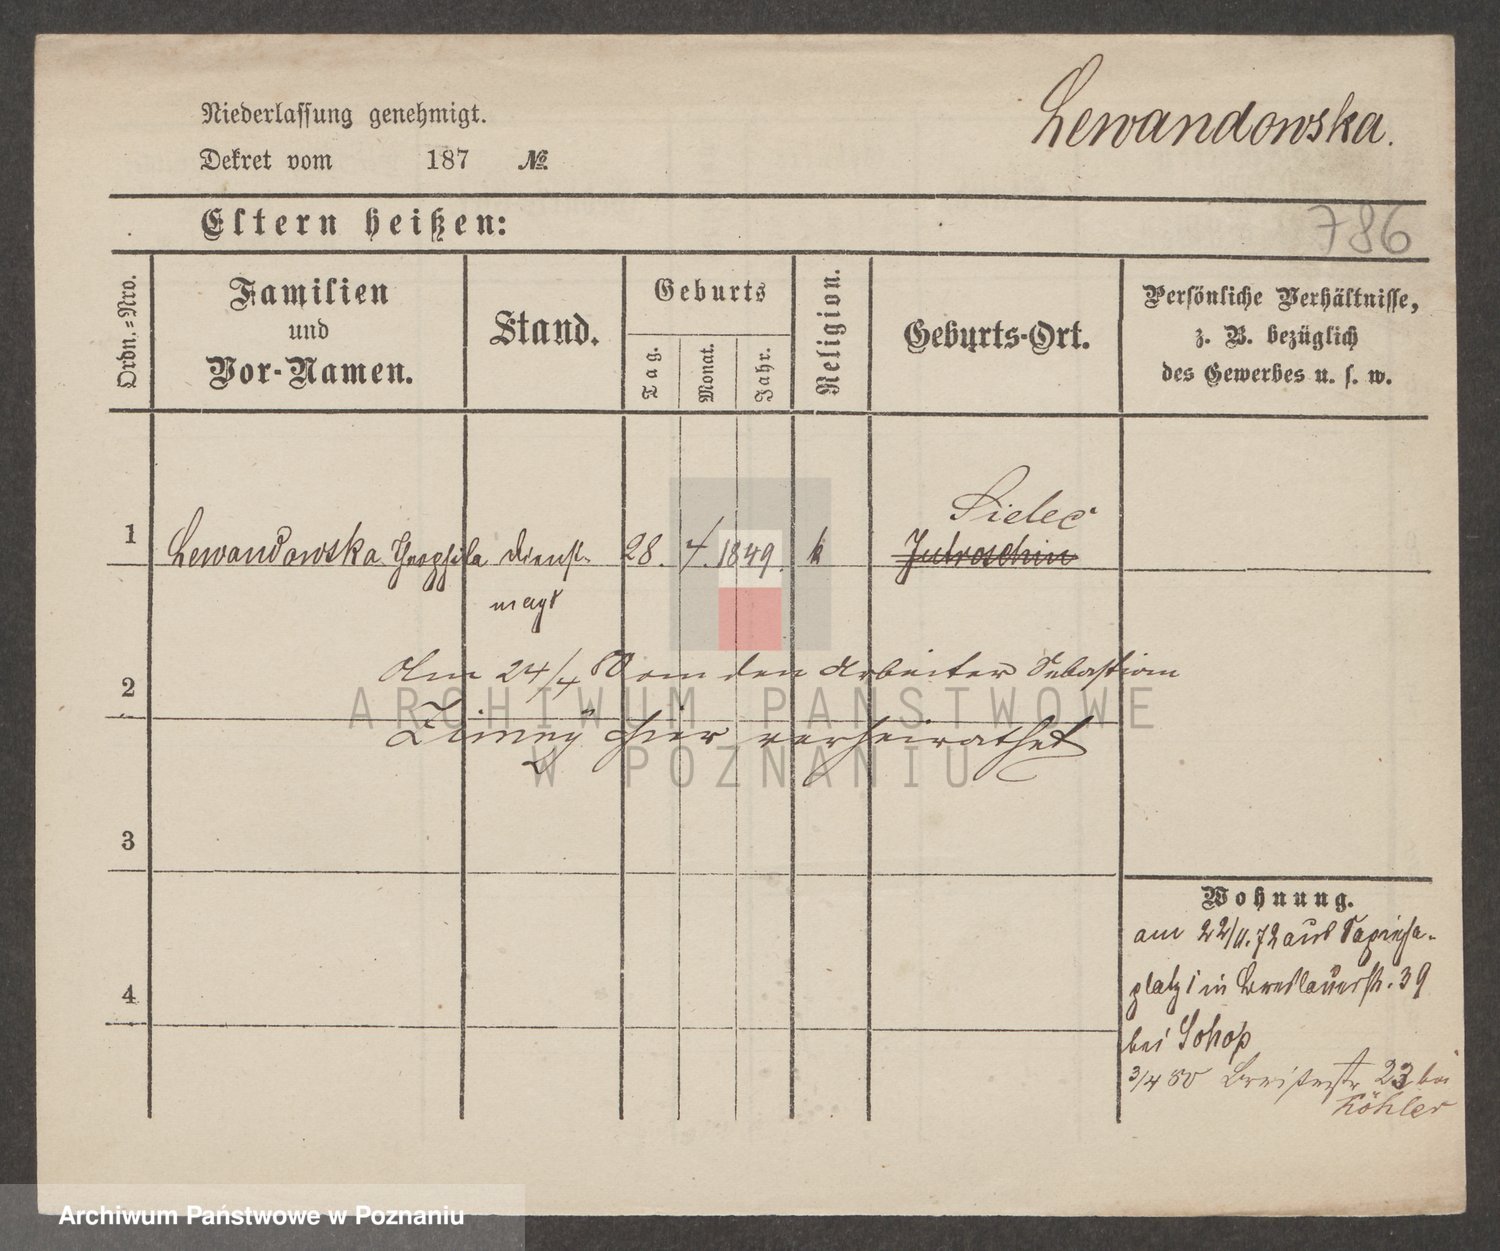 Niederlassung genehmigt.
Lewandowska.
Dekret vom 187 №
Eltern heißen:
786
Ordn.-Nro.
Familien
und
Vor-Namen.
Stand.
Geburts
Tag.
Monat.
Jahr.
Religion.
Geburts-Ort.
Persönliche Verhältnisse,
z. B. bezüglich
des Gewerbes u. s. w.
Sielec
1 Lewandowska Theophila Dienst- 28. 4. 1849. k Jutroschin
magd
Am 24/4 80 den Arbeiter Sebastian
2
hier verheirathet
3
Wohnung.
am 22/11.72 aus Sapieha-
4
platz 1 in Breslauerstr. 39
bei
3/4 80 Breitestr 23 bei
Köhler
ARCHIWUM PAŃSTWOWE
W POZNANIU
Archiwum Państwowe w Poznaniu